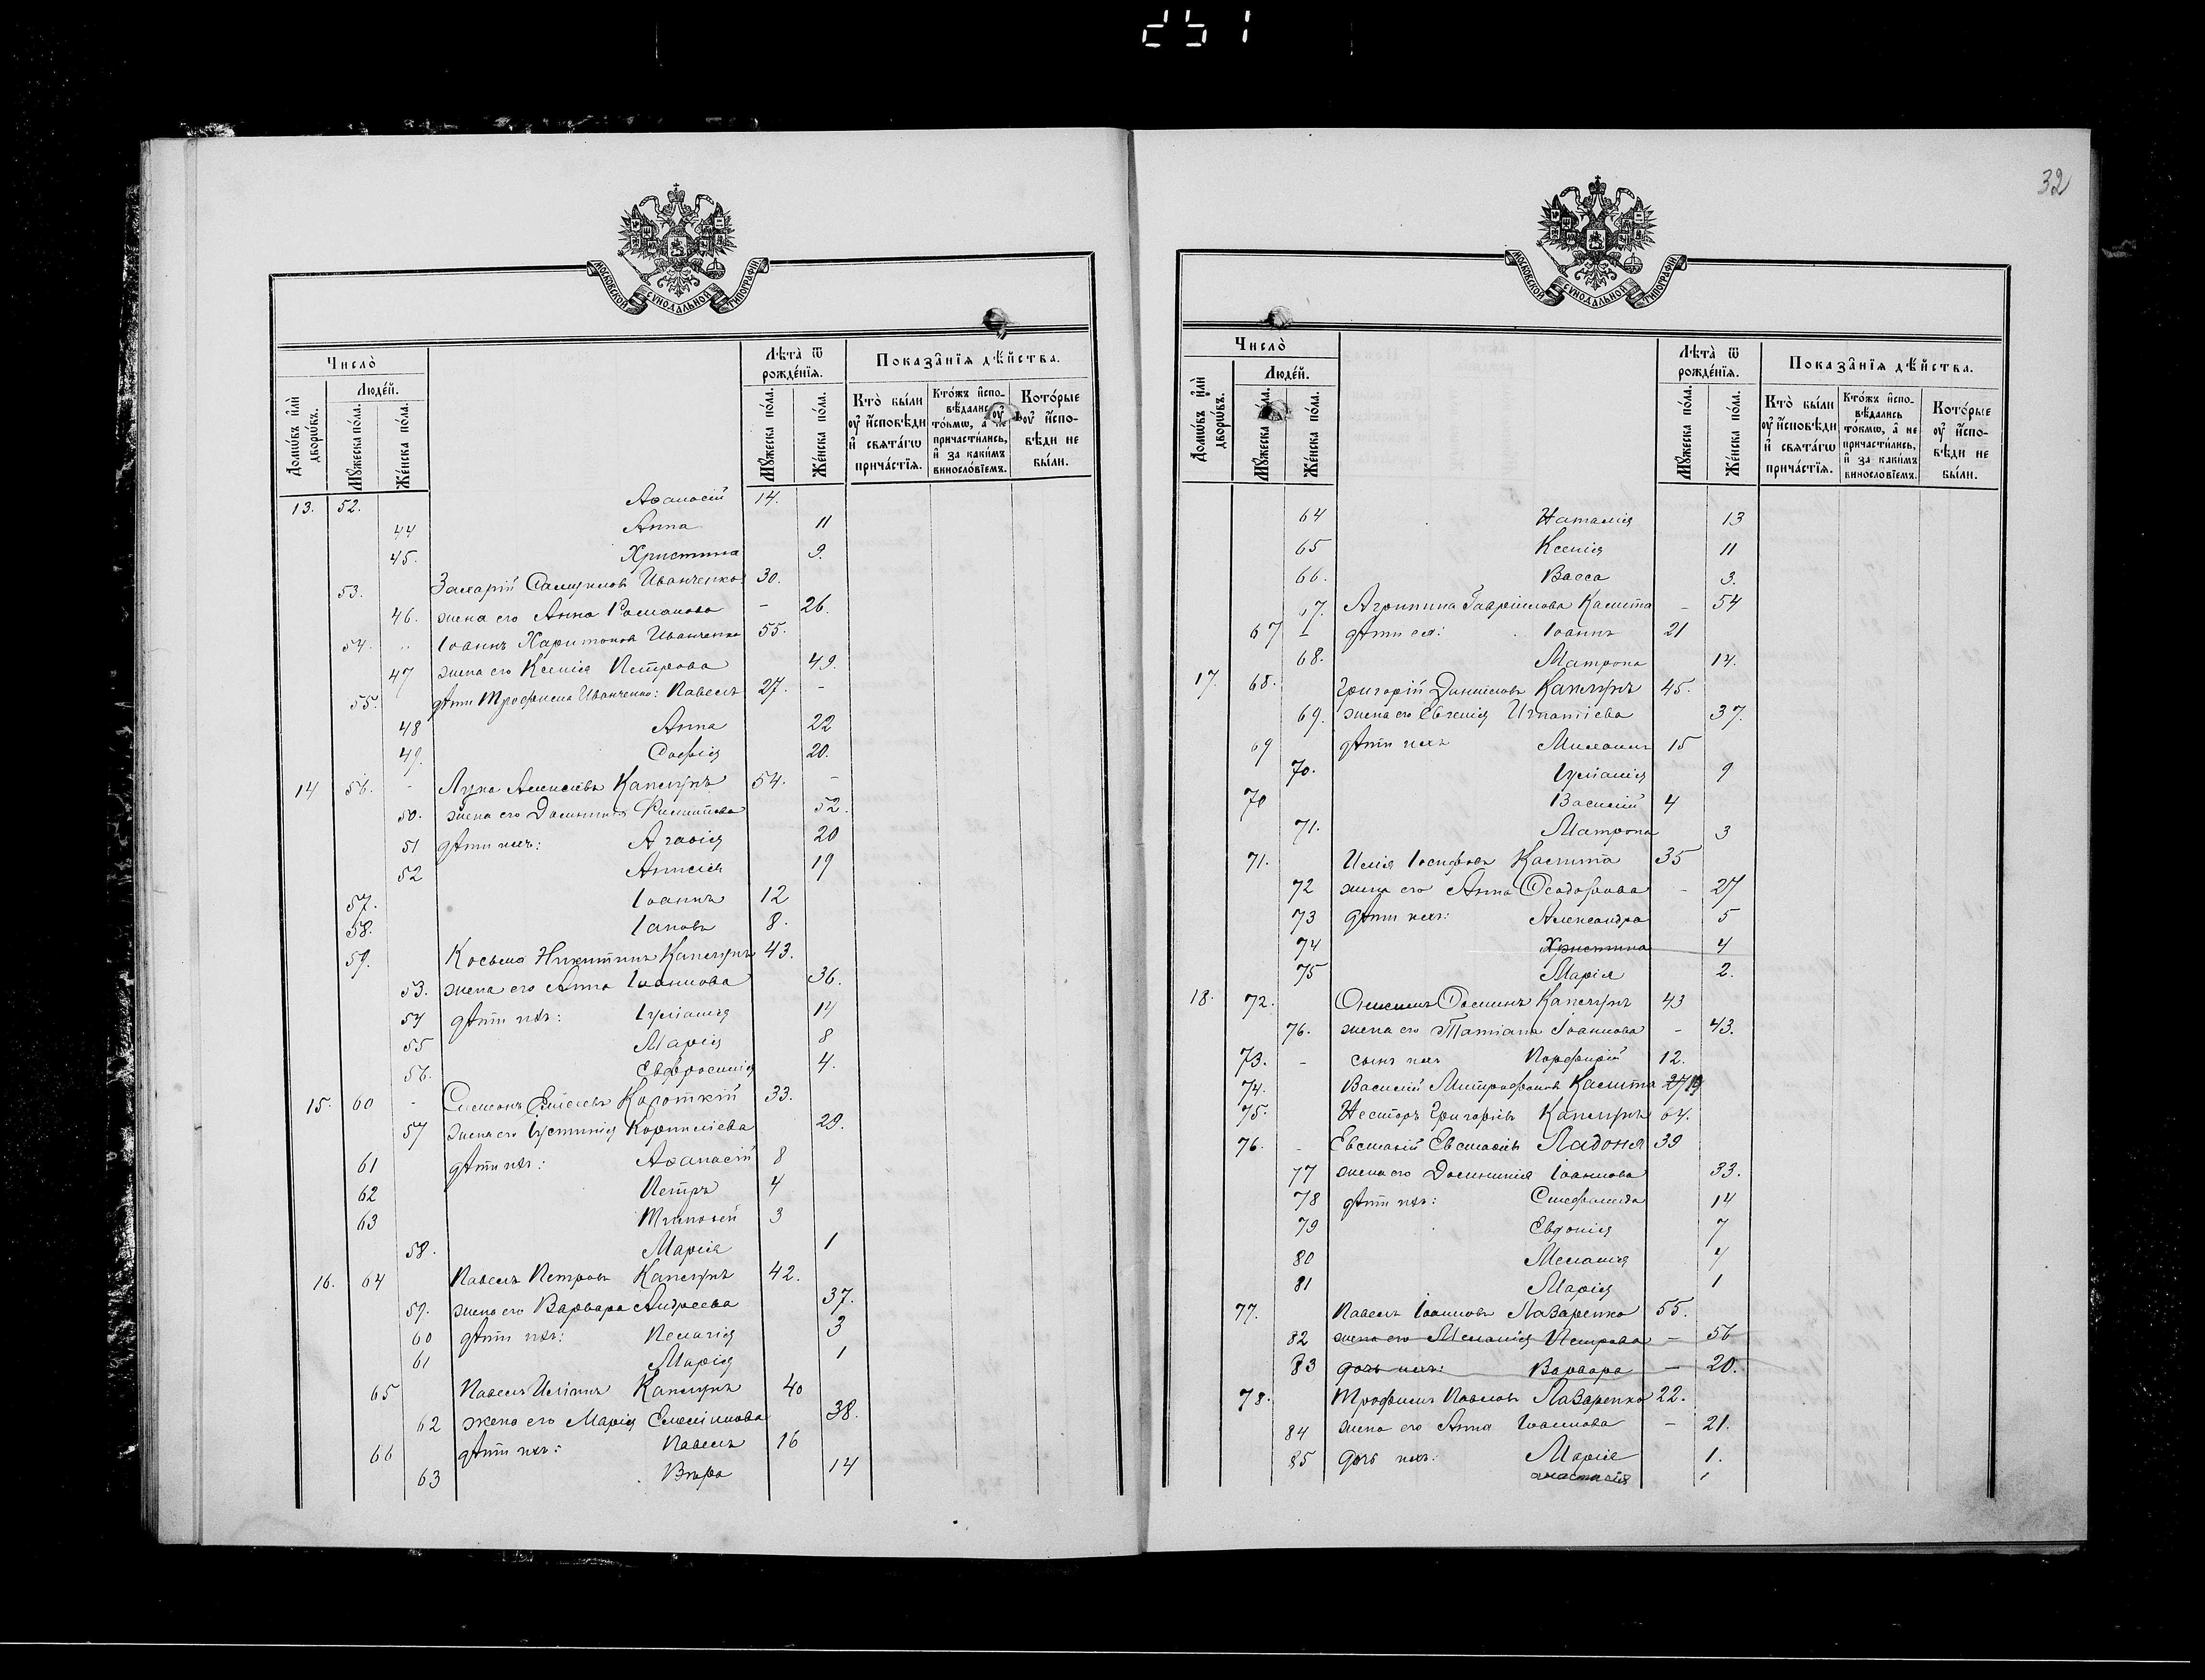 251
32
МОСКОВСКОЙ СѴНОДАЛЬНОЙ ТИПОГРАФІИ
Число̀
Домѡ́въ и҆лѝ дворѡ́въ.
Люде́й.
Мꙋ́жеска по́ла.
Же́нска по́ла.
Лѣта̀ ѿ рожде́нїѧ.
Мꙋ́жеска по́ла.
Же́нска по́ла.
Показа̑нїѧ дѣ́йства.
Кто̀ бы́ли оу҆ и҆сповѣ́ди и҆ свѧта́гѡ прича́стїѧ.
Кто́жъ и҆спо-вѣ́дались то́кмѡ, а҆ не причасти́лись, и҆ за каки́мъ винословїемъ.
Кото́рые оу҆ и҆спо-вѣ́ди не бы́ли.
13. 52. Аѳанасій 14.
44 Анна 11
45. Христина 9.
53. Захарій Самуиловъ Иванченко 30.
46. жена его Анна Романова - 26.
54. „ Іоаннъ Харитоновъ Иванченко 55.
47 жена его Ксенія Петрова 49.
55. дѣти Трофима Иванченко: Павелъ 27. -
48 Анна 22
49. Софія 20.
14 56. - Лука Алексіевъ Капелухъ 54. -
50. жена его Домникія Филиппова 52.
51 дѣти ихъ: Агафія 20
52 Анисія 19
57. Іоаннъ 12
58. Іаковъ 8.
59. Косьма Никитинъ Капелухъ 43.
53. жена его Анна Іоаннова 36.
54 дѣти ихъ: Іуліанія 14
55 Марія 8
56. Евфросинія 4.
15. 60 - Симеонъ Короткій 33.
57 жена его Іустинія Корниліева 29.
61 дѣти ихъ: Аѳанасій 8
62 Петръ 4
63 Тимоѳей 3
58. Марія 1
16. 64 Павелъ Петровъ Капелухъ 42.
59. жена его Варвара Андреева 37.
60 дѣти ихъ: Пелагія 3
61 Марія 1
65 Павелъ Иліинъ Капелухъ 40
62 жена его Марія 38.
66 дѣти ихъ: Павелъ 16
63 Вѣра 14
МОСКОВСКОЙ СѴНОДАЛЬНОЙ ТИПОГРАФІИ
Число̀
Домѡ́въ и҆лѝ дворѡ́въ.
Люде́й.
Мꙋ́жеска по́ла.
Же́нска по́ла.
Лѣта̀ ѿ рожде́нїѧ.
Мꙋ́жеска по́ла.
Же́нска по́ла.
Показа̑нїѧ дѣ́йства.
Кто̀ бы́ли оу҆ и҆сповѣ́ди и҆ свѧта́гѡ прича́стїѧ.
Кто́жъ и҆спо-вѣ́дались то́кмѡ, а҆ не причасти́лись, и҆ за каки́мъ винословїемъ.
Кото́рые оу҆ и҆спо-вѣ́ди не бы́ли.
64 Наталія 13
65 Ксенія 11
66. Васса 3.
67. Агрипина Гавріилова Калита - 54
67 дѣти ея: Іоаннъ 21
68. Матрона 14.
17. 68. Григорій Даниловъ Капелухъ 45.
69. жена его Евгенія Игнатіева 37.
69 дѣти ихъ Михаилъ 15
70. Іуліанія 9
70 Василій 4
71. Матрона 3
71. Илія Іосифовъ Калита 35
72 жена его Анна Ѳеодорова - 27
73 дѣти ихъ: Александра 5
74 Христина 4
75 Марія 2.
18. 72. Онисимъ Ѳоминъ Капелухъ 43
76. жена его Татіана Іоаннова - 43.
73. - сынъ ихъ Порфирій 12.
74. Василій Митрофановъ Калита 27 19
75. Несторъ Григоріевъ Капелухъ 64.
76. - Евстафій Евстафіевъ Ладоня 39
77 жена его Домникія Іоаннова 33.
78 дѣти ихъ: Стефанида 14
79 Евдокія 7
80 Меланія 4
81 Марія 1
77. Павелъ Іоанновъ Лазаренко 55.
82 жена его Меланія Петрова - 56
83 дочь ихъ: Варвара - 20.
78. Трофимъ Павловъ Лазаренко 22.
84 жена его Анна Іоаннова - 21.
85 дочь ихъ: Марія 1.
анастасія 1